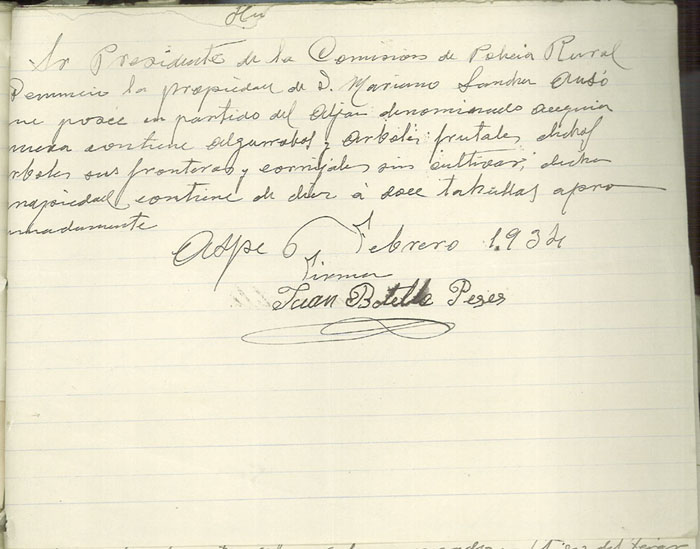 Sr Presidente de la Comision de Policia Rural
Denuncio la propiedad de D. Mariano Sanchez Ausó
ue poseé en partido del Aljau denominado acequia
nueva contiene algarrobos y arboles frutales dichos
rboles sus fronteras y cornijales sin cultivar, dicha
propiedad contiene de diez á doce tahullas apro
ximadamente
Aspe 6 Febrero 1.934
Firma
Juan Botella Peres